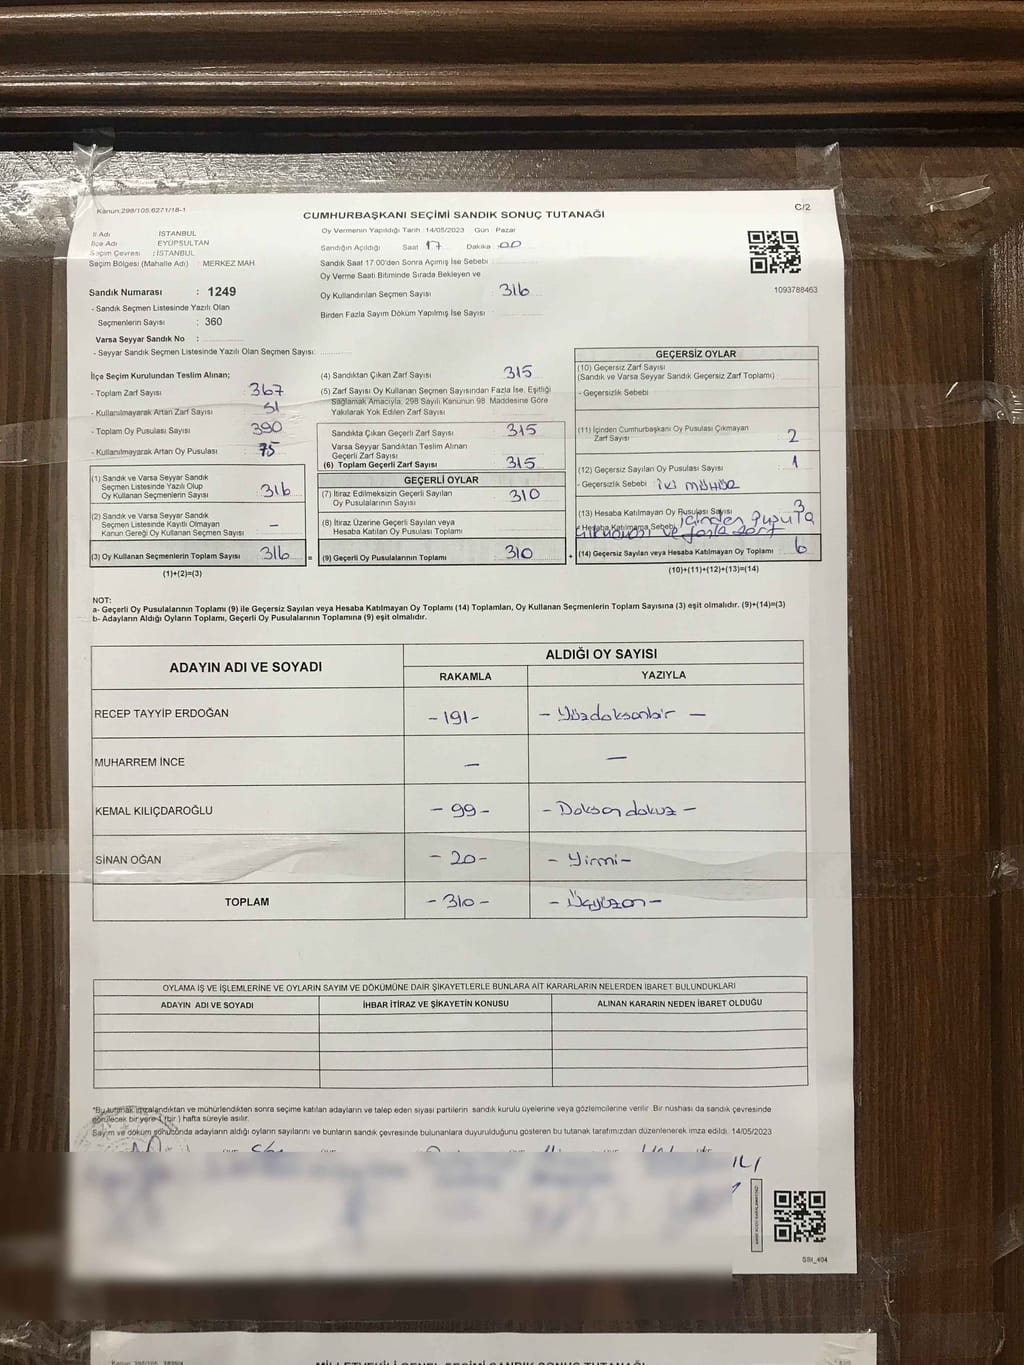 Kanun:298/105,6271/18-1
C/2
CUMHURBAŞKANI SEÇİMİ SANDIK SONUÇ TUTANAĞI
İl Adı : İSTANBUL
İlçe Adı : EYÜPSULTAN
Seçim Çevresi : İSTANBUL
Seçim Bölgesi (Mahalle Adı) : MERKEZ MAH.
Sandık Numarası : 1249
- Sandık Seçmen Listesinde Yazılı Olan
Seçmenlerin Sayısı : 360
Varsa Seyyar Sandık No :
- Seyyar Sandık Seçmen Listesinde Yazılı Olan Seçmen Sayısı:
Oy Vermenin Yapıldığı Tarih : 14/05/2023 Gün : Pazar
Sandığın Açıldığı Saat : 17 Dakika : 00
Sandık Saat 17:00'den Sonra Açılmış İse Sebebi :
Oy Verme Saati Bitiminde Sırada Bekleyen ve
Oy Kullandırılan Seçmen Sayısı : 316
Birden Fazla Sayım Döküm Yapılmış İse Sayısı :
1093788463
İlçe Seçim Kurulundan Teslim Alınan;
- Toplam Zarf Sayısı : 367
- Kullanılmayarak Artan Zarf Sayısı : 51
- Toplam Oy Pusulası Sayısı : 390
- Kullanılmayarak Artan Oy Pusulası : 75
(1) Sandık ve Varsa Seyyar Sandık
Seçmen Listesinde Yazılı Olup
Oy Kullanan Seçmenlerin Sayısı : 316
(2) Sandık ve Varsa Seyyar Sandık
Seçmen Listesinde Kayıtlı Olmayan
Kanun Gereği Oy Kullanan Seçmen Sayısı : -
(3) Oy Kullanan Seçmenlerin Toplam Sayısı : 316 =
(1)+(2)=(3)
(4) Sandıktan Çıkan Zarf Sayısı : 315
(5) Zarf Sayısı Oy Kullanan Seçmen Sayısından Fazla İse, Eşitliği
Sağlamak Amacıyla, 298 Sayılı Kanunun 98. Maddesine Göre
Yakılarak Yok Edilen Zarf Sayısı :
Sandıkta Çıkan Geçerli Zarf Sayısı : 315
Varsa Seyyar Sandıktan Teslim Alınan
Geçerli Zarf Sayısı :
(6) Toplam Geçerli Zarf Sayısı : 315
GEÇERLİ OYLAR
(7) İtiraz Edilmeksizin Geçerli Sayılan
Oy Pusulalarının Sayısı : 310
(8) İtiraz Üzerine Geçerli Sayılan veya
Hesaba Katılan Oy Pusulası Toplamı :
(9) Geçerli Oy Pusulalarının Toplamı : 310 +
GEÇERSİZ OYLAR
(10) Geçersiz Zarf Sayısı
(Sandık ve Varsa Seyyar Sandık Geçersiz Zarf Toplamı) :
- Geçersizlik Sebebi :
(11) İçinden Cumhurbaşkanı Oy Pusulası Çıkmayan
Zarf Sayısı : 2
(12) Geçersiz Sayılan Oy Pusulası Sayısı : 1
- Geçersizlik Sebebi : İKİ MÜHÜR
(13) Hesaba Katılmayan Oy Pusulası Sayısı : 3
- Hesaba Katılmama Sebebi : içinden pusula
çıkmaması ve fazla zarf
(14) Geçersiz Sayılan veya Hesaba Katılmayan Oy Toplamı : 6
(10)+(11)+(12)+(13)=(14)
NOT:
a- Geçerli Oy Pusulalarının Toplamı (9) ile Geçersiz Sayılan veya Hesaba Katılmayan Oy Toplamı (14) Toplamları, Oy Kullanan Seçmenlerin Toplam Sayısına (3) eşit olmalıdır. (9)+(14)=(3)
b- Adayların Aldığı Oyların Toplamı, Geçerli Oy Pusulalarının Toplamına (9) eşit olmalıdır.
ADAYIN ADI VE SOYADI
ALDIĞI OY SAYISI
RAKAMLA YAZIYLA
RECEP TAYYİP ERDOĞAN -191- - Yüzdoksanbir -
MUHARREM İNCE - -
KEMAL KILIÇDAROĞLU - 99 - - Doksan dokuz -
SİNAN OĞAN - 20 - - Yirmi -
TOPLAM - 310 - - Üçyüzon -
OYLAMA İŞ VE İŞLEMLERİNE VE OYLARIN SAYIM VE DÖKÜMÜNE DAİR ŞİKAYETLERLE BUNLARA AİT KARARLARIN NELERDEN İBARET BULUNDUKLARI
ADAYIN ADI VE SOYADI İHBAR İTİRAZ VE ŞİKAYETİN KONUSU ALINAN KARARIN NEDEN İBARET OLDUĞU
*Bu tutanak imzalandıktan ve mühürlendikten sonra seçime katılan adayların ve talep eden siyasi partilerin sandık kurulu üyelerine veya gözlemcilerine verilir. Bir nüshası da sandık çevresinde
görülecek bir yere 1 (bir) hafta süreyle asılır.
Sayım ve döküm sonucunda adayların aldığı oyların sayılarını ve bunların sandık çevresinde bulunanlara duyurulduğunu gösteren bu tutanak tarafımızdan düzenlenerek imza edildi. 14/05/2023
SSt_404
MİLLETVEKİLİ GENEL SEÇİMİ SANDIK SONUÇ TUTANAĞI